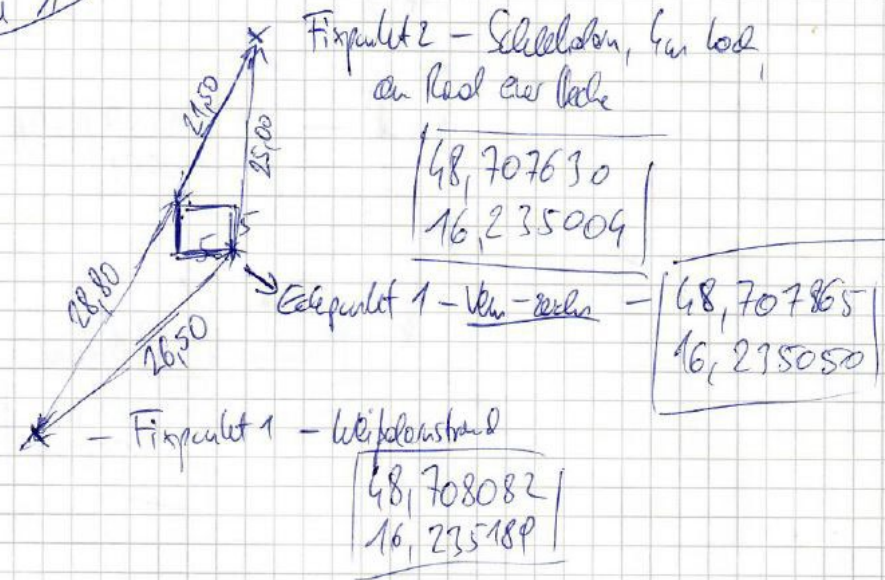 Fixpunkt 2 – Schlehdorn, 4m hoch,
am Rand einer Hecke
48,707630
16,235004
21,50
25,00
5
5
28,80
26,50
Eckpunkt 1 – –
48,707865
16,235050
– Fixpunkt 1 – Weißdornstrauch
48,708082
16,235189